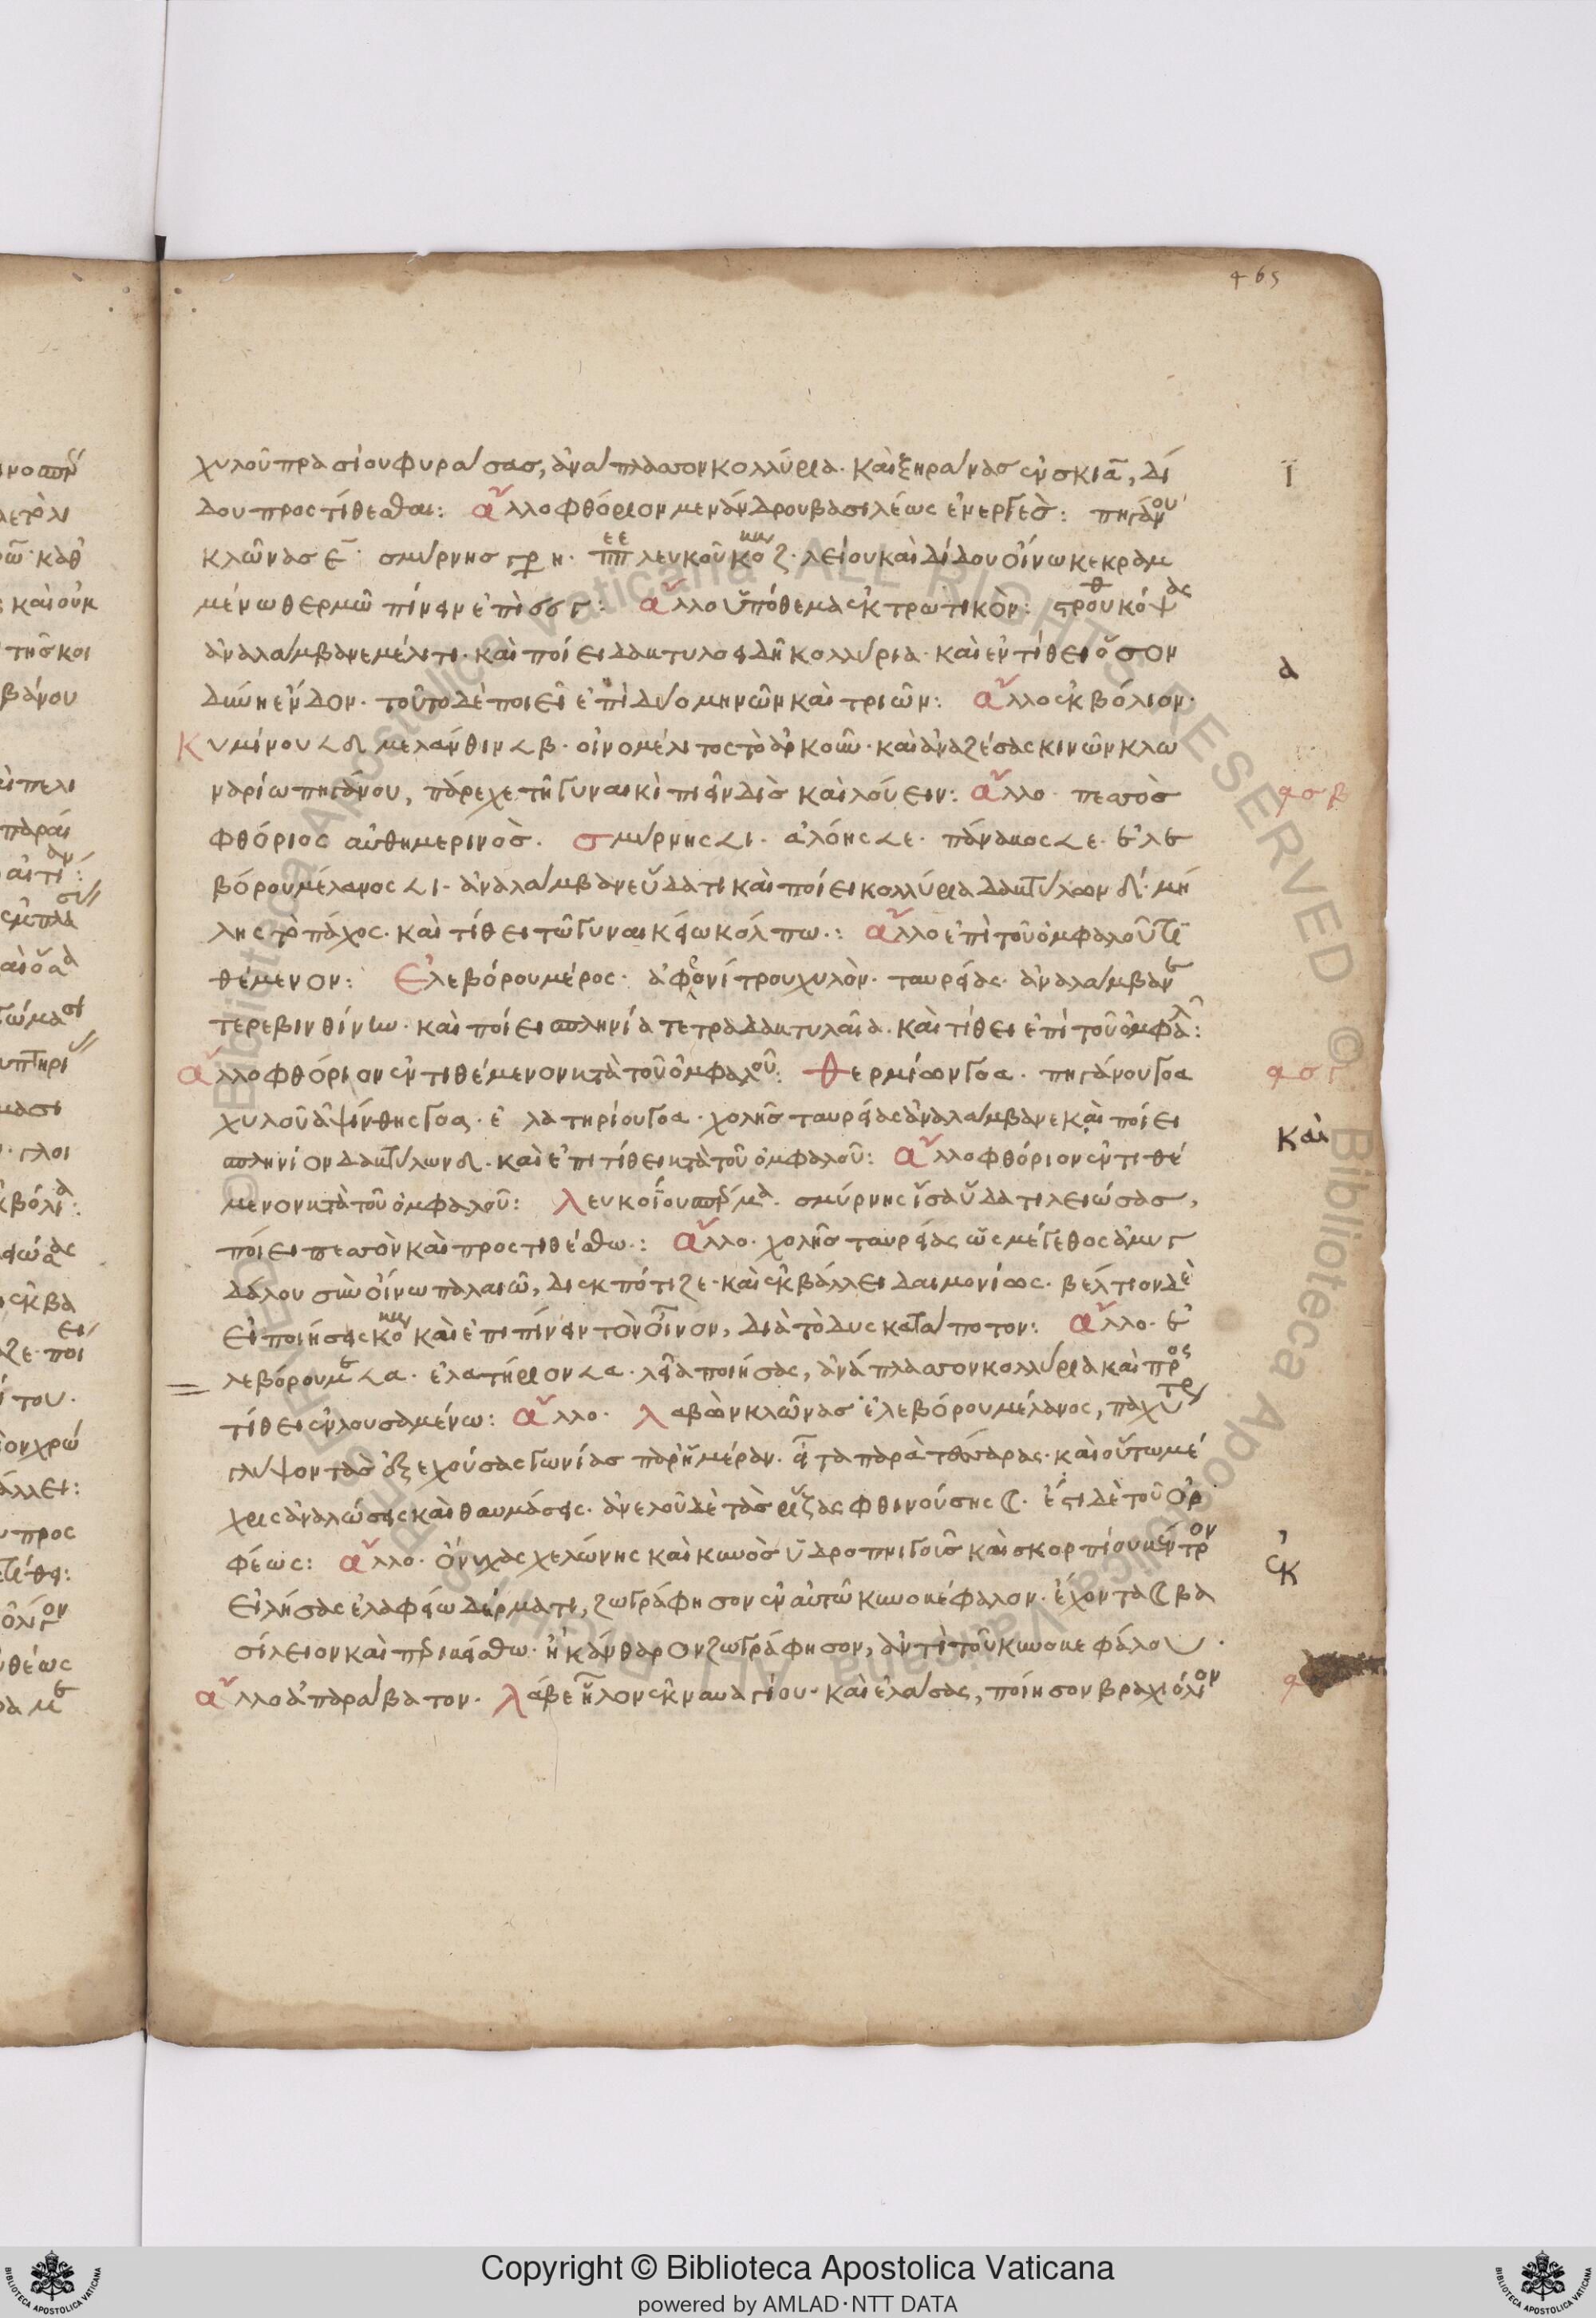 465
χυλοῦ πρασίου φυράσας, ἀνάπλασσον κολλύρια· καὶ ξηράνας ἐν σκιᾶ, δί
δου προστίθεσθαι: ἄλλο φθόριον μενάνδρου βασιλέως ἐνεργὲς: πηγάνου
κλῶνας ε̄· σμύρνης γρ η· πεπε λευκοῦ κο ζ· λείου καὶ δίδου οἴνω κεκραμ
μένω θερμῶ πίνειν ἐπὶ γ: ἄλλο ὑπόθεμα ἐκτρωτικὸν: κόψας
ἀναλάμβανε μέλιτι· καὶ ποίει δακτυλοειδῆ κολλύρια· καὶ ἐντίθει ὅσον
ἔνδον· τοῦτο δὲ ποιεῖ ἐπὶ δύο μηνῶν καὶ τριῶν: ἄλλο ἐκβόλιον·
Κυμίνου < δ μελάνθιν < β· οἰνομέλιτος τὸ ἀρκοῦν· καὶ ἀναζέσας κινῶν κλω
ναρίω πηγάνου, πάρεχε τῆ γυναικὶ πιεῖν δὶς καὶ λούειν: ἄλλο· πεσσὸς
φθόριος αὐθημερινὸς. σμύρνης < ι· ἀλόης < ε· πάνακος < ε· ἐλε
βόρου μέλανος < ι· ἀναλάμβανε ὕδατι καὶ ποίει κολλύρια δακτύλων δ· μή
λης τὸ πάχος· καὶ τίθει τῶ γυναικείω κόλπω·: ἄλλο ἐπὶ τοῦ ὀμφαλοῦ τι
θέμενον: Ἐλεβόρου μέρος· ἀφρονίτρου χυλὸν· ταυρείας· ἀναλάμβανε
τερεβινθίνω· καὶ ποίει σπληνία τετραδακτυλαῖα· καὶ τίθει ἐπὶ τοῦ ὀμφαλ:
ἄλλο φθόριον ἐντιθέμενον κατὰ τοῦ ὀμφαλοῦ: θερμίων γο α· πηγάνου γο α
χυλοῦ ἀψίνθης γο α· ἐλατηρίου γο α· χολῆς ταυρείας ἀναλάμβανε καὶ ποίει
σπληνίον δακτύλων δ· καὶ ἐπιτίθει κατὰ τοῦ ὀμφαλοῦ: ἄλλο φθόριον ἐντιθέ
μενον κατὰ τοῦ ὀμφαλοῦ: λευκοΐου σπέρμα· σμύρνης ἴσα ὕδατι λειώσας,
ποίει πεσσὸν καὶ προστιθέσθω·: ἄλλο· χολῆς ταυρείας ὡς μέγεθος ἀμυγ
δάλου σὺν οἴνω παλαιῶ, δὶς πότιζε· καὶ ἐκβάλλει δαιμονίως· βέλτιον δὲ
εἰ ποιήσεις κο καὶ ἐπιπίνειν τὸν οἶνον, διὰ τὸ δυσκατάποτον: ἄλλο· ἐ
λεβόρου με < α· ἐλατήριον < α· λεῖα ποιήσας, ἀνάπλασσον κολλύρια καὶ προς
τίθει ἐν λουσαμένω: ἄλλο· λαβὼν κλῶνας ἐλεβόρου μέλανος, παχυτε
ὀξεχούσας γωνίας παρ' ἡμέραν· εἶτα παρὰ τέσσαρας· καὶ οὕτω μέ
χρις ἀναλώσεις καὶ θαυμάσεις· ἀνελοῦ δὲ τὰς ῥίζας φθινούσης ☾· ἐστι δὲ τοῦ ὀρ
φέως: ἄλλο· ὄνυχας χελώνης καὶ κυνὸς ὑδροπηγοῖς καὶ σκορπίου κέντρον
εἰλήσας ἐλαφείω δέρματι, ζωγράφησον ἐν αὐτῶ κυνοκέφαλον· ἔχοντα ☾ βα
σίλειον καὶ περικείσθω· ἢ κάνθαρον ζωγράφησον, ἀντὶ τοῦ κυνοκεφάλου·
ἄλλο ἀπαράβατον· λάβε ἧλον ἐκ ναυαγίου· καὶ ἐλάσας, ποίησον βραχιόλιον
ϊ
α
φσβ
φσγ
καὶ
ἐκ
Copyright © Biblioteca Apostolica Vaticana
powered by AMLAD·NTT DATA